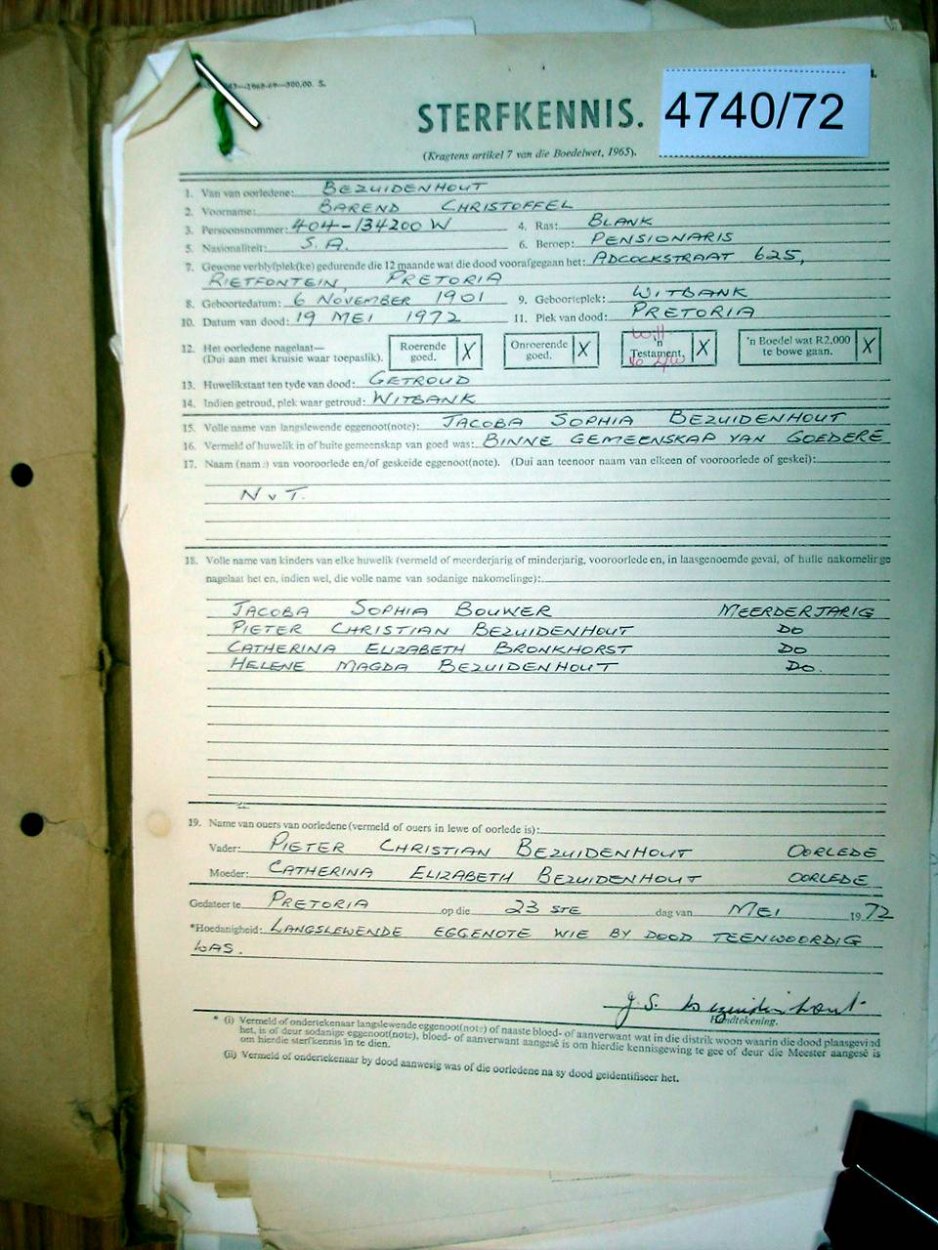 STERFKENNIS.
4740/72
(Kragtens artikel 7 van die Boedelwet, 1965).
1. Van van oorledene: BEZUIDENHOUT
2. Voorname: BAREND CHRISTOFFEL
3. Persoonsnommer: 404-134200 W 4. Ras: BLANK
5. Nasionaliteit: S.A. 6. Beroep: PENSIONARIS
7. Gewone verblyfplek(ke) gedurende die 12 maande wat die dood voorafgegaan het: ADCOCKSTRAAT 625,
RIETFONTEIN, PRETORIA
8. Geboortedatum: 6 NOVEMBER 1901 9. Geboorteplek: WITBANK
10. Datum van dood: 19 MEI 1972 11. Plek van dood: PRETORIA
12. Het oorledene nagelaat— Roerende goed. X Onroerende goed. X Will 'n Testament, X 'n Boedel wat R2,000 te bowe gaan. X
(Dui aan met kruisie waar toepaslik).
13. Huwelikstaat ten tyde van dood: GETROUD
14. Indien getroud, plek waar getroud: WITBANK
15. Volle name van langslewende eggenoot(note): JACOBA SOPHIA BEZUIDENHOUT
16. Vermeld of huwelik in of buite gemeenskap van goed was: BINNE GEMEENSKAP VAN GOEDERE
17. Naam (name) van vooroorlede en/of geskeide eggenoot(note). (Dui aan teenoor naam van elkeen of vooroorlede of geskei):
N v T.
18. Volle name van kinders van elke huwelik (vermeld of meerderjarig of minderjarig, vooroorlede en, in laasgenoemde geval, of hulle nakomelinge
nagelaat het en, indien wel, die volle name van sodanige nakomelinge):
JACOBA SOPHIA BOUWER MEERDERJARIG
PIETER CHRISTIAN BEZUIDENHOUT DO
CATHERINA ELIZABETH BRONKHORST DO
HELENE MAGDA BEZUIDENHOUT DO.
19. Name van ouers van oorledene (vermeld of ouers in lewe of oorlede is):
Vader: PIETER CHRISTIAN BEZUIDENHOUT OORLEDE
Moeder: CATHERINA ELIZABETH BEZUIDENHOUT OORLEDE
Gedateer te PRETORIA op die 23 STE dag van MEI 1972
*Hoedanigheid: LANGSLEWENDE EGGENOTE WIE BY DOOD TEENWOORDIG
WAS.
J.S. Bezuidenhout
Handtekening.
* (i) Vermeld of ondertekenaar langslewende eggenoot(note) of naaste bloed- of aanverwant wat in die distrik woon waarin die dood plaasgevind
het, is of deur sodanige eggenoot(note), bloed- of aanverwant aangesê is om hierdie kennisgewing te gee of deur die Meester aangesê is
om hierdie sterfkennis in te dien.
(ii) Vermeld of ondertekenaar by dood aanwesig was of die oorledene na sy dood geïdentifiseer het.